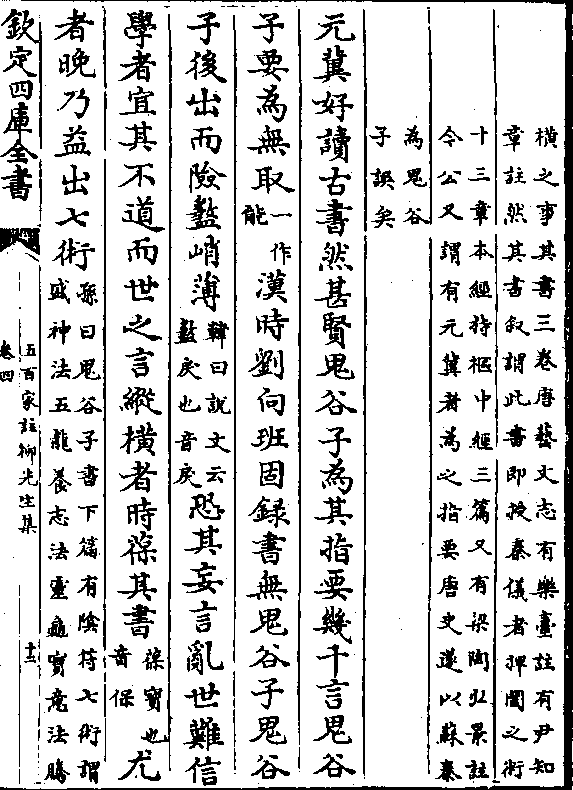 橫之事其書三卷唐藝文志有樂臺註有尹知
章註然其書叙謂此書即授秦儀者捭闔之術
十三章本經持樞中經三篇又有梁陶弘景註
令公又謂有元冀者為之指要唐史遂以蘇秦
為鬼谷
子誤矣
元冀好讀古書然甚賢鬼谷子為其指要幾千言鬼谷
子要為無取一作能漢時劉向班固錄書無鬼谷子鬼谷
子後出而險盭峭薄韓曰說文云盭戾也音戾恐其妄言亂世難信
學者宜其不道而世之言縱橫者時葆其書葆寶也音保尤
者晚乃益出七術孫曰鬼谷子書下篇有陰符七術謂盛神法五龍養志法靈龜實意法騰
欽定四庫全書
五百家註柳先生集
卷四
十三